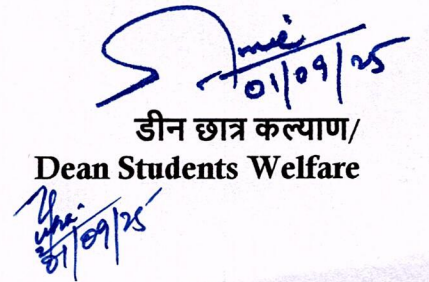 01/09/25
डीन छात्र कल्याण/
Dean Students Welfare
01/09/25